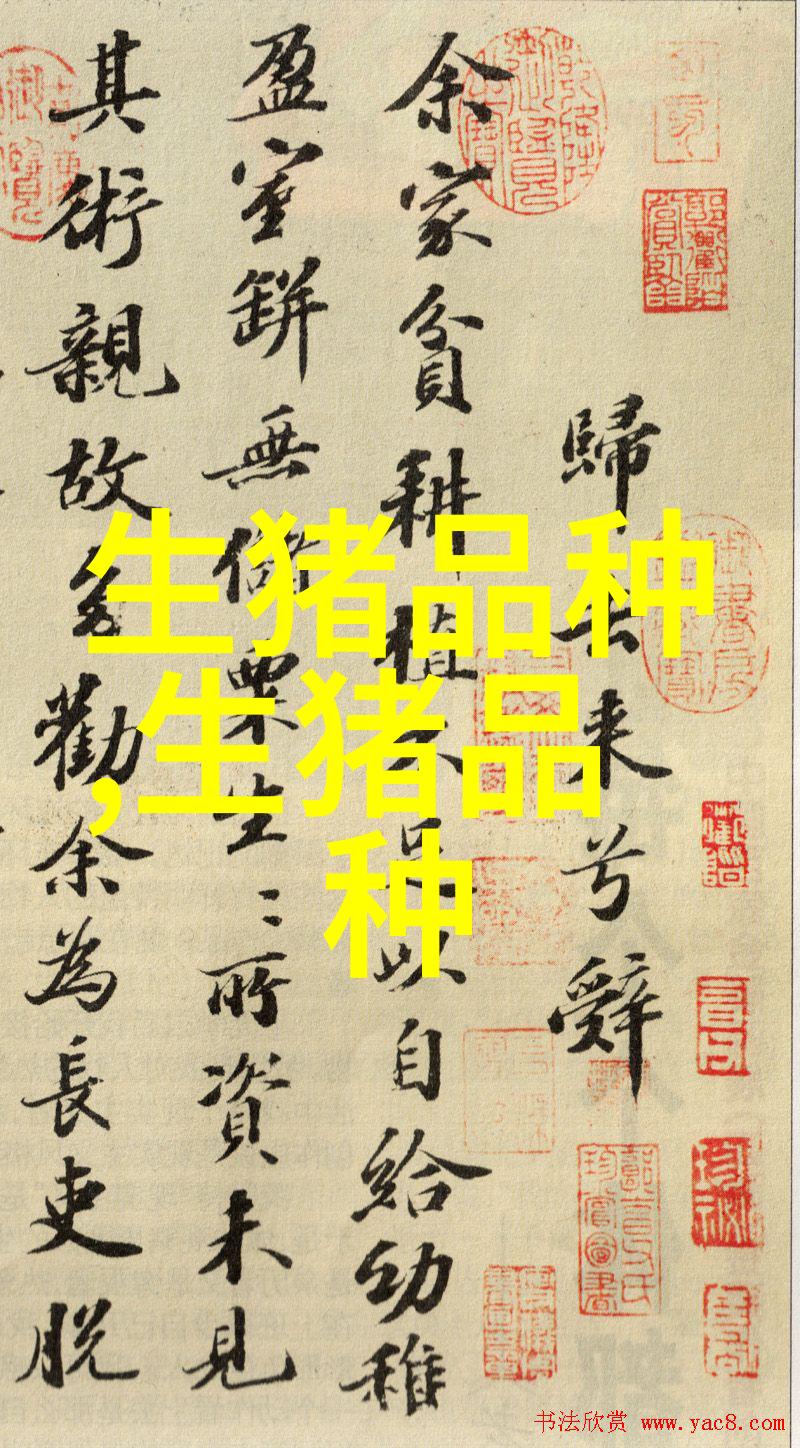 歸去来兮辞
余家貧耕植不足以自給幼稚
盈室缾無儲粟生〻所資未見
其術親故多勸余為長吏脱
生猪品种
,生猪品
种
书法欣赏 www.yac8.com